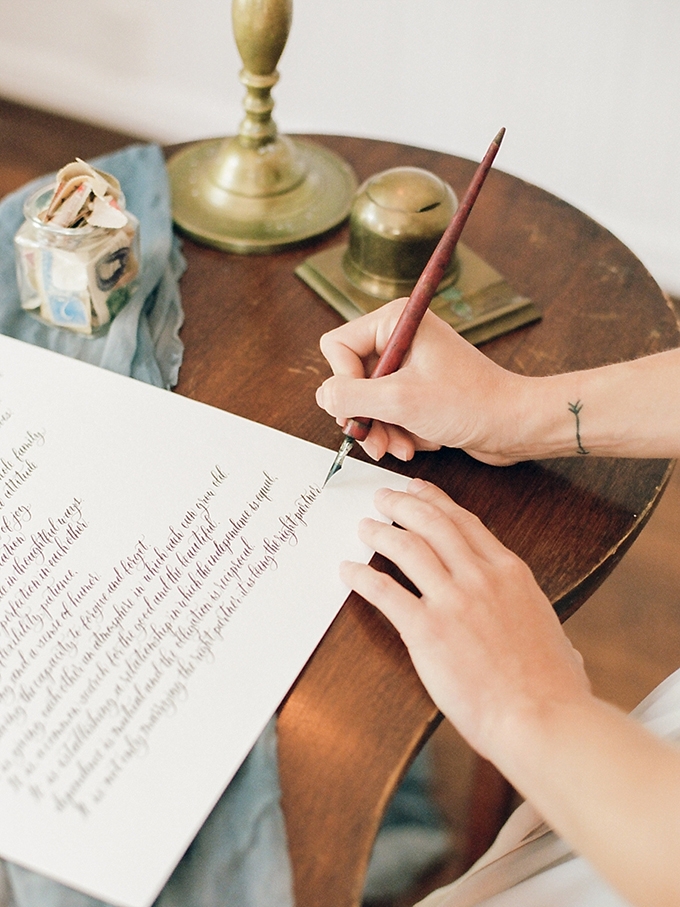 family.
attitude
of joy.
in thoughtful ways.
perfection in each other.
flexibility, patience,
and a sense of humor.
having the capacity to forgive and forget.
is giving each other an atmosphere in which each can grow old.
It is a common search for the good and the beautiful.
It is establishing a relationship in which the independence is equal,
dependence is mutual and the obligation is reciprocal.
It is not only marrying the right partner, it is being the right partner.